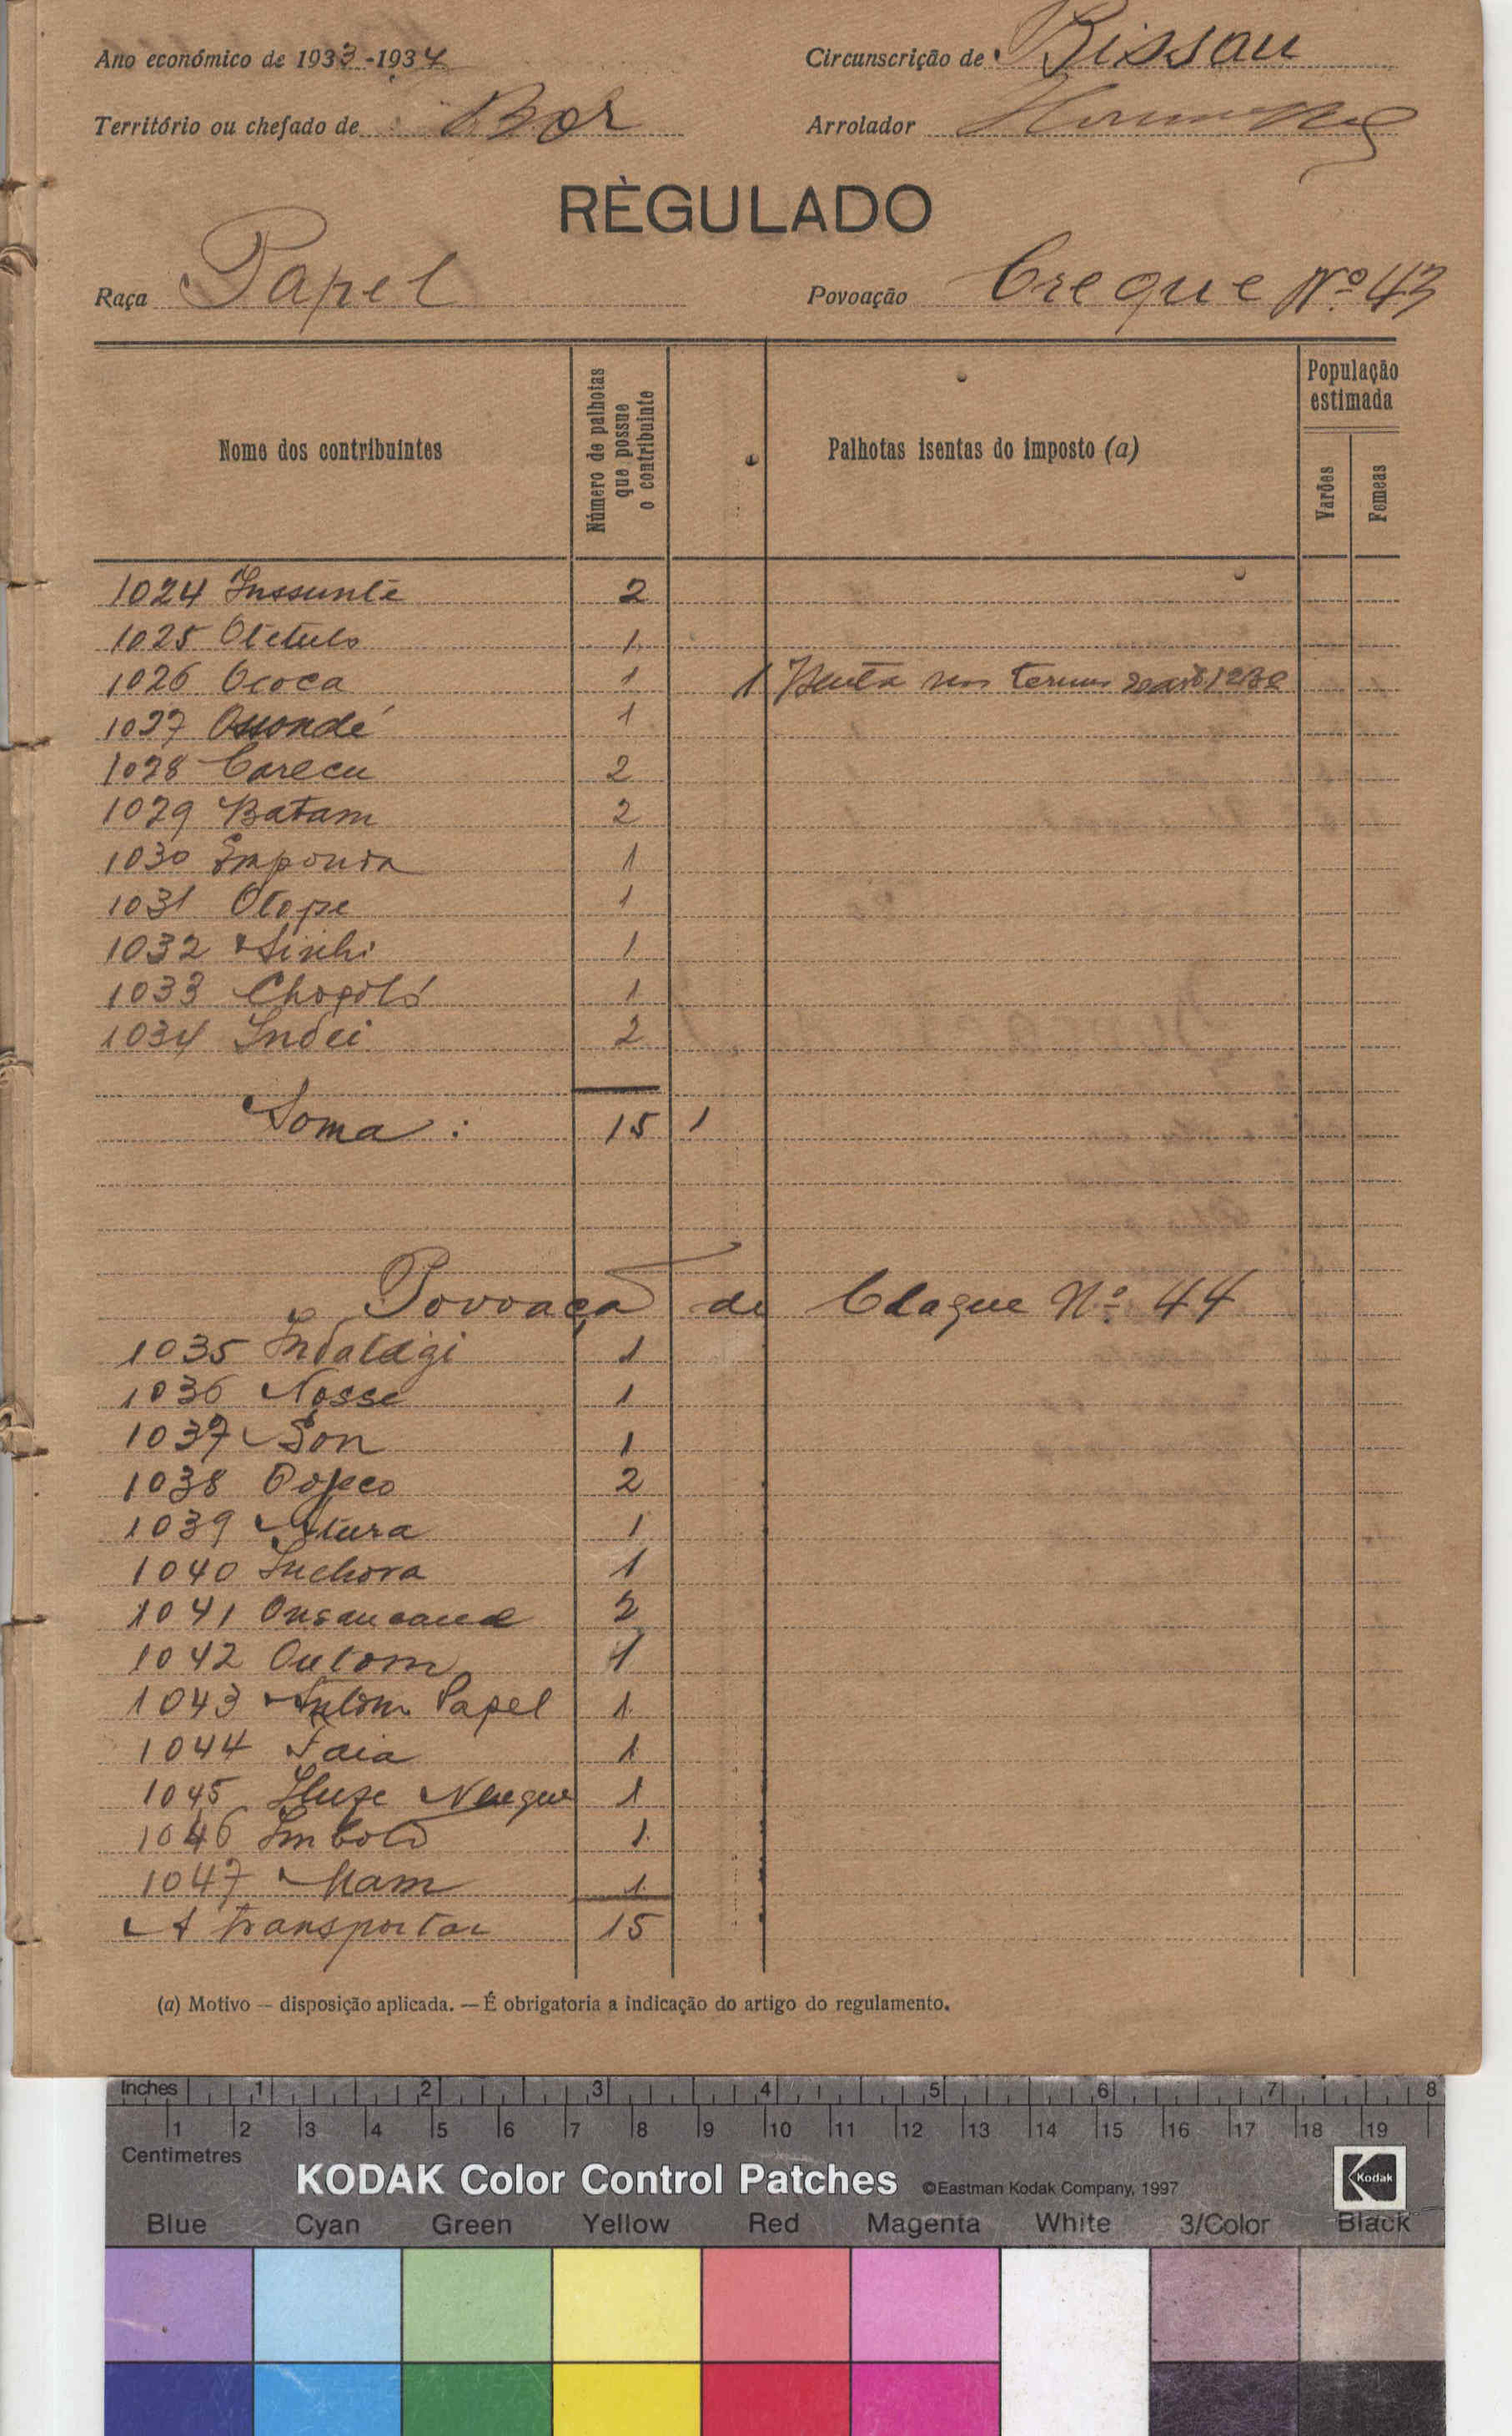 Ano económico de 1933-1934
Circunscrição de Bissau
Território ou chefado de Bor
Arrolador
RÈGULADO
Raça Papel
Povoação Creque Nº 43
Nome dos contribuintes
Número de palhotas que possue o contribuinte
Palhotas isentas do imposto (a)
População estimada
Varões
Femeas
1024 Inssunté 2
1025 Otetulo 1
1026 Ococa 1 1 Isenta nos termos
1027 Ossondé 1
1028 Carecu 2
1029 Batam 2
1030 1
1031 Otope 1
1032 1
1033 1
1034 Indei 2
Soma: 15 1
Povoaçã de Claque Nº 44
1035 Indatági 1
1036 Nosse 1
1037 Son 1
1038 2
1039 Atura 1
1040 Inchora 1
1041 2
1042 Outom 1
1043 Papel 1
1044 Faia 1
1045 1
1046 Imbotó 1
1047 Mam 1
A transportar 15
(a) Motivo — disposição aplicada. — É obrigatoria a indicação do artigo do regulamento.
Inches 1 2 3 4 5 6 7 8
1 2 3 4 5 6 7 8 9 10 11 12 13 14 15 16 17 18 19
Centimetres
KODAK Color Control Patches ©Eastman Kodak Company, 1997 Kodak
Blue Cyan Green Yellow Red Magenta White 3/Color Black